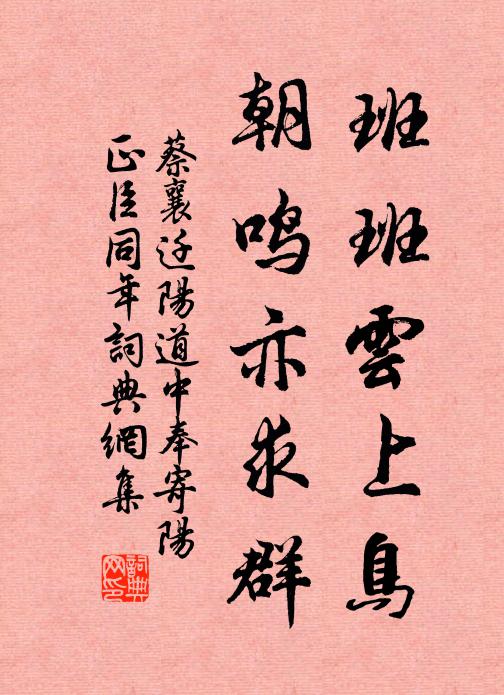 班班雲上鳥
朝鳴亦求群
蔡襄迁陽道中奉寄陽
正臣同年詞典網集
詞典网印